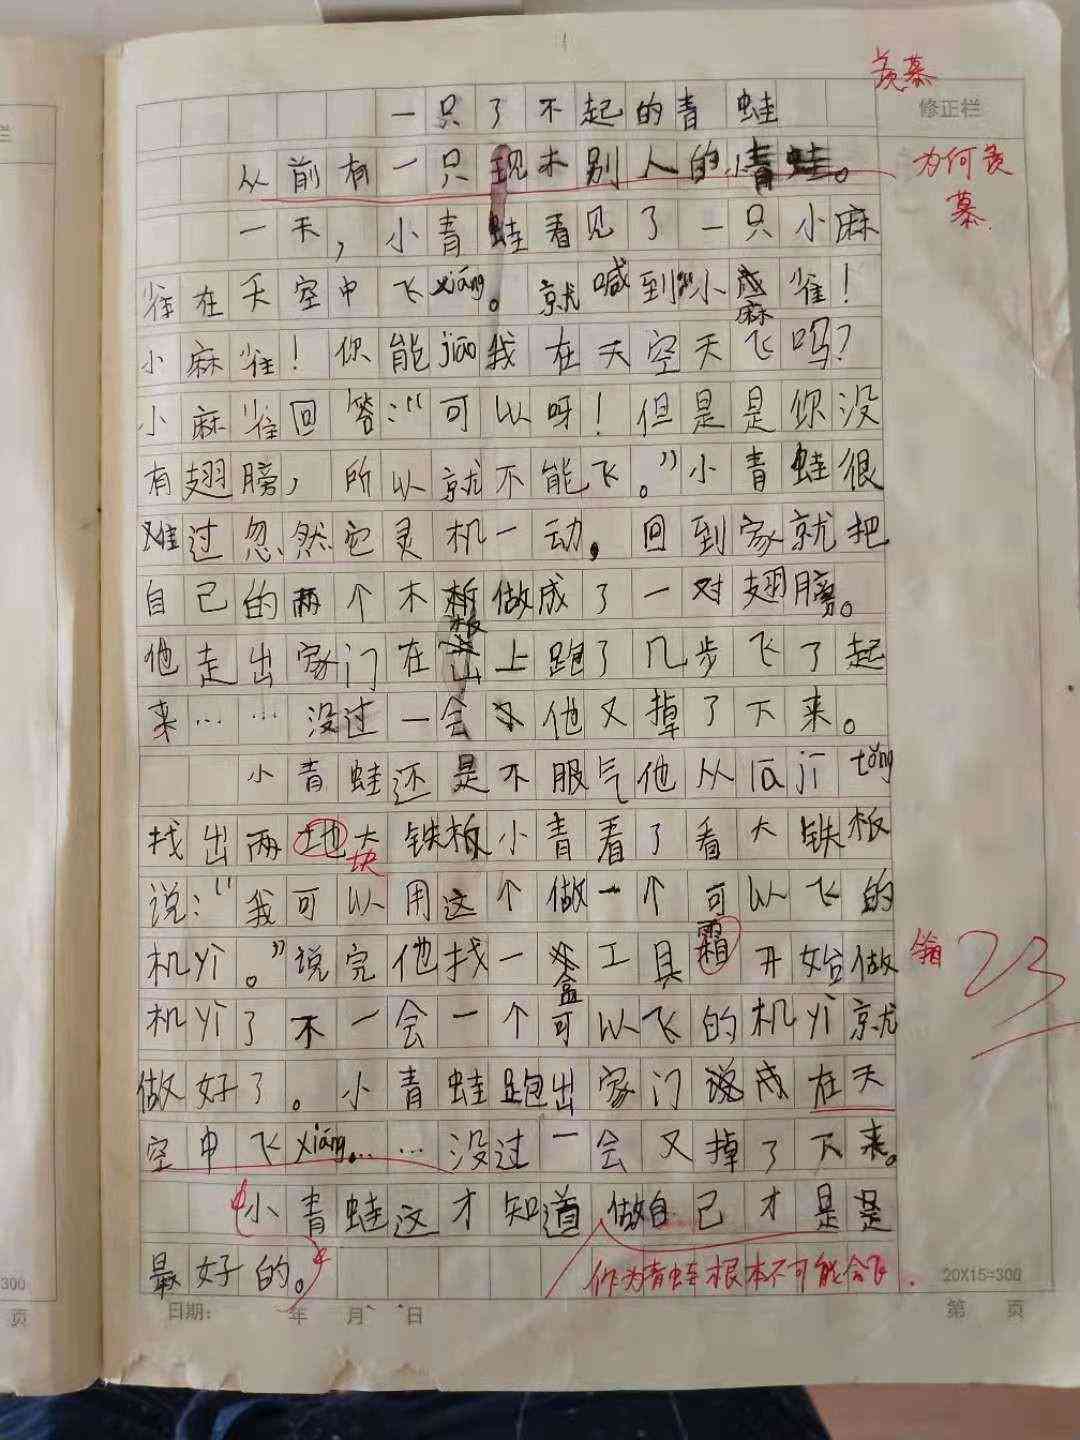 羡慕
一只了不起的青蛙
修正栏
从前有一只现木别人的小青蛙。
为何羡
慕
一天，小青蛙看见了一只小麻
雀在天空中飞xiáng。就喊到“小麻雀！
小麻雀！你能jiāo我在天空天飞吗？
小麻雀回答：“可以呀！但是是你没
有翅膀，所以就不能飞。”小青蛙很
难过忽然它灵机一动，回到家就把
自己的两个木板做成了一对翅膀。
他走出家门在山上跑了几步飞了起
来……没过一会他又掉了下来。
小青蛙还是不服气他从lā jī tǒng
找出两地大铁板小青看了看大铁板
块
说：“我可以用这个做一个可以飞的
机yì。”说完他找一盒工具霜开始做
箱
23
机yì了不一会一个可以飞的机yì就
做好了。小青蛙跑出家门说成在天
空中飞xiáng……没过一会又掉了下来。
小青蛙这才知道做自己才是是
最好的。
作为青蛙根本不可能会飞.
20X15=300
日期： 年 月 日
第 页
栏
300
页